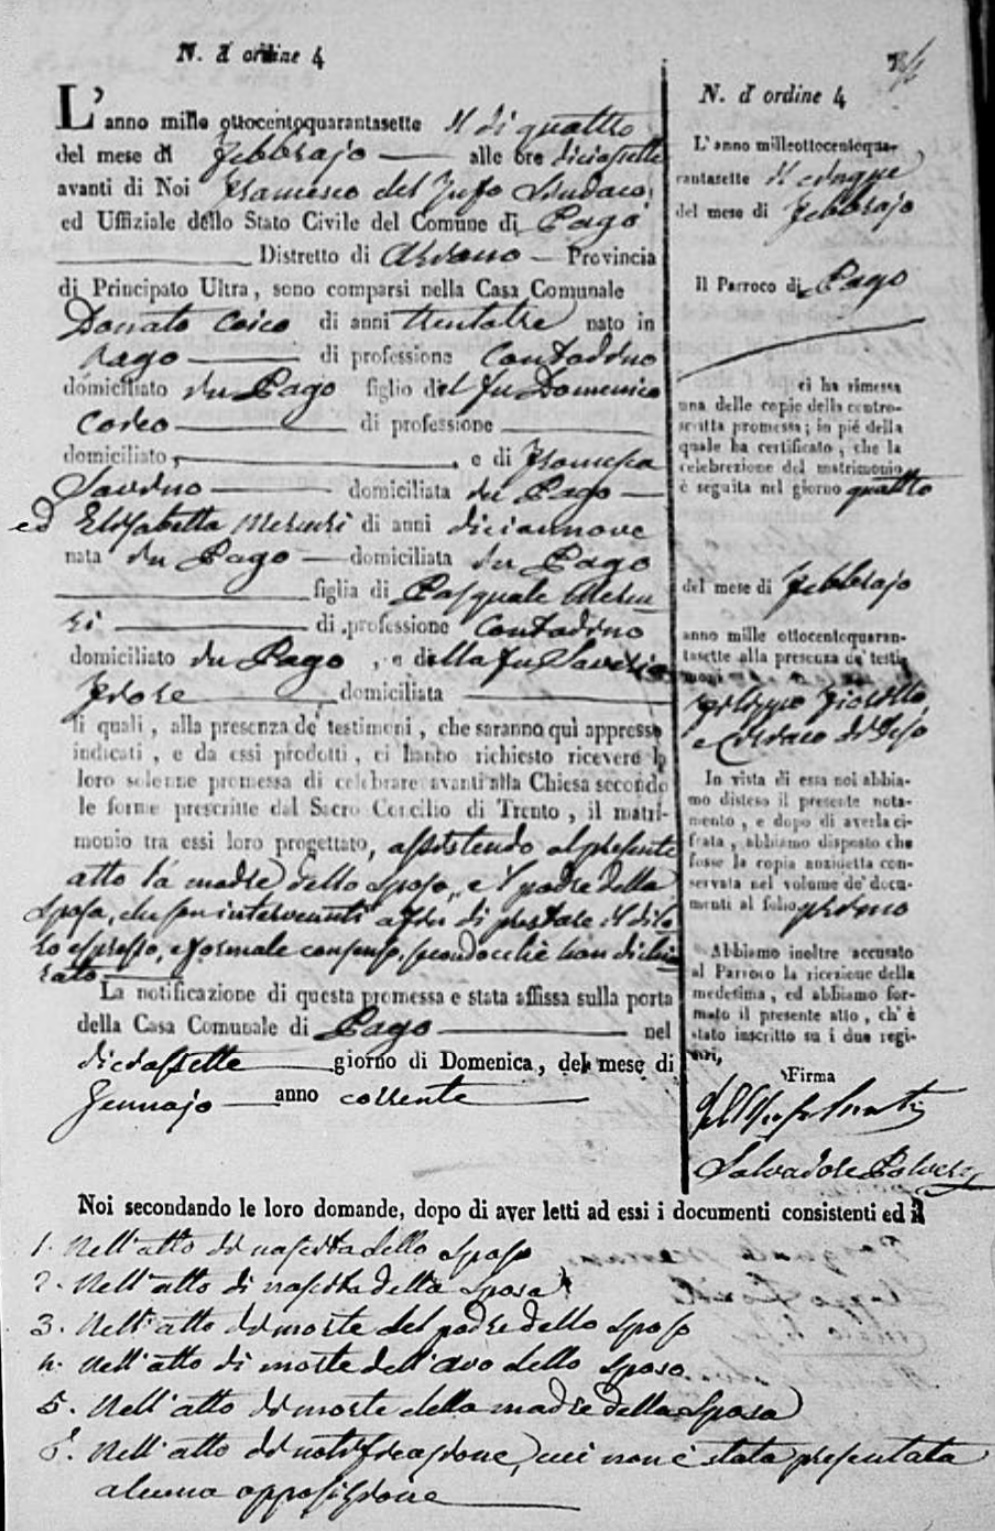 N. d'ordine 4
L'anno mille ottocentoquarantasette il di quattro
del mese di Febbrajo alle ore diciassette
avanti di Noi Francesco del Sindaco,
ed Uffiziale dello Stato Civile del Comune di Pago
Distretto di Provincia
di Principato Ultra, sono comparsi nella Casa Comunale
Donato Corco di anni trentatre nato in
Pago di professione Contadino
domiciliato in Pago figlio del fu Domenico
Corco di professione
domiciliato, e di Francesca
Savino domiciliata in Pago
ed Elisabetta Mercuri di anni diciannove
nata in Pago domiciliata in Pago
figlia di Pasquale Mercu
ri di professione Contadino
domiciliato in Pago, e della fu Saveria
domiciliata
li quali, alla presenza de' testimoni, che saranno quì appresso
indicati, e da essi prodotti, ci hanno richiesto ricevere la
loro solenne promessa di celebrare avanti alla Chiesa secondo
le forme prescritte dal Sacro Concilio di Trento, il matri-
monio tra essi loro progettato, assistendo al presente
atto la madre dello sposo, e il padre della
sposa, che son intervenuti a fin di prestare il di lo
ro espresso, e formale consenso, secondocchè han dichia
rato
La notificazione di questa promessa e stata affissa sulla porta
della Casa Comunale di Pago nel
diciassette giorno di Domenica, del mese di
Gennajo anno corrente
N. d'ordine 4
L'anno milleottocentoqua-
rantasette il cinque
del mese di Febbrajo
il Parroco di Pago
ci ha rimessa
una delle copie della contro-
scritta promessa; in piè della
quale ha certificato, che la
celebrazione del matrimonio
è seguita nel giorno quattro
del mese di Febbrajo
anno mille ottocentoquaran-
tasette alla presenza de' testi-
moni
Filippo
e
In vista di essa noi abbia-
mo disteso il presente nota-
mento, e dopo di averla ci-
frata, abbiamo disposto che
fosse la copia anzidetta con-
servata nel volume de' docu-
menti al folio primo
Abbiamo inoltre accusato
al Parroco la ricezione della
medesima, ed abbiamo for-
mato il presente atto, ch'è
stato inscritto su i due regi-
stri,
Firma
Salvadore
Noi secondando le loro domande, dopo di aver letti ad essi i documenti consistenti ed il
1. Nell'atto di nascita dello sposo
2. Nell'atto di nascita della sposa
3. Nell'atto di morte del padre dello sposo
4. Nell'atto di morte dell'avo dello sposo
5. Nell'atto di morte della madre della sposa
6. Nell'atto di notificazione, cui non è stata presentata
alcuna opposizione